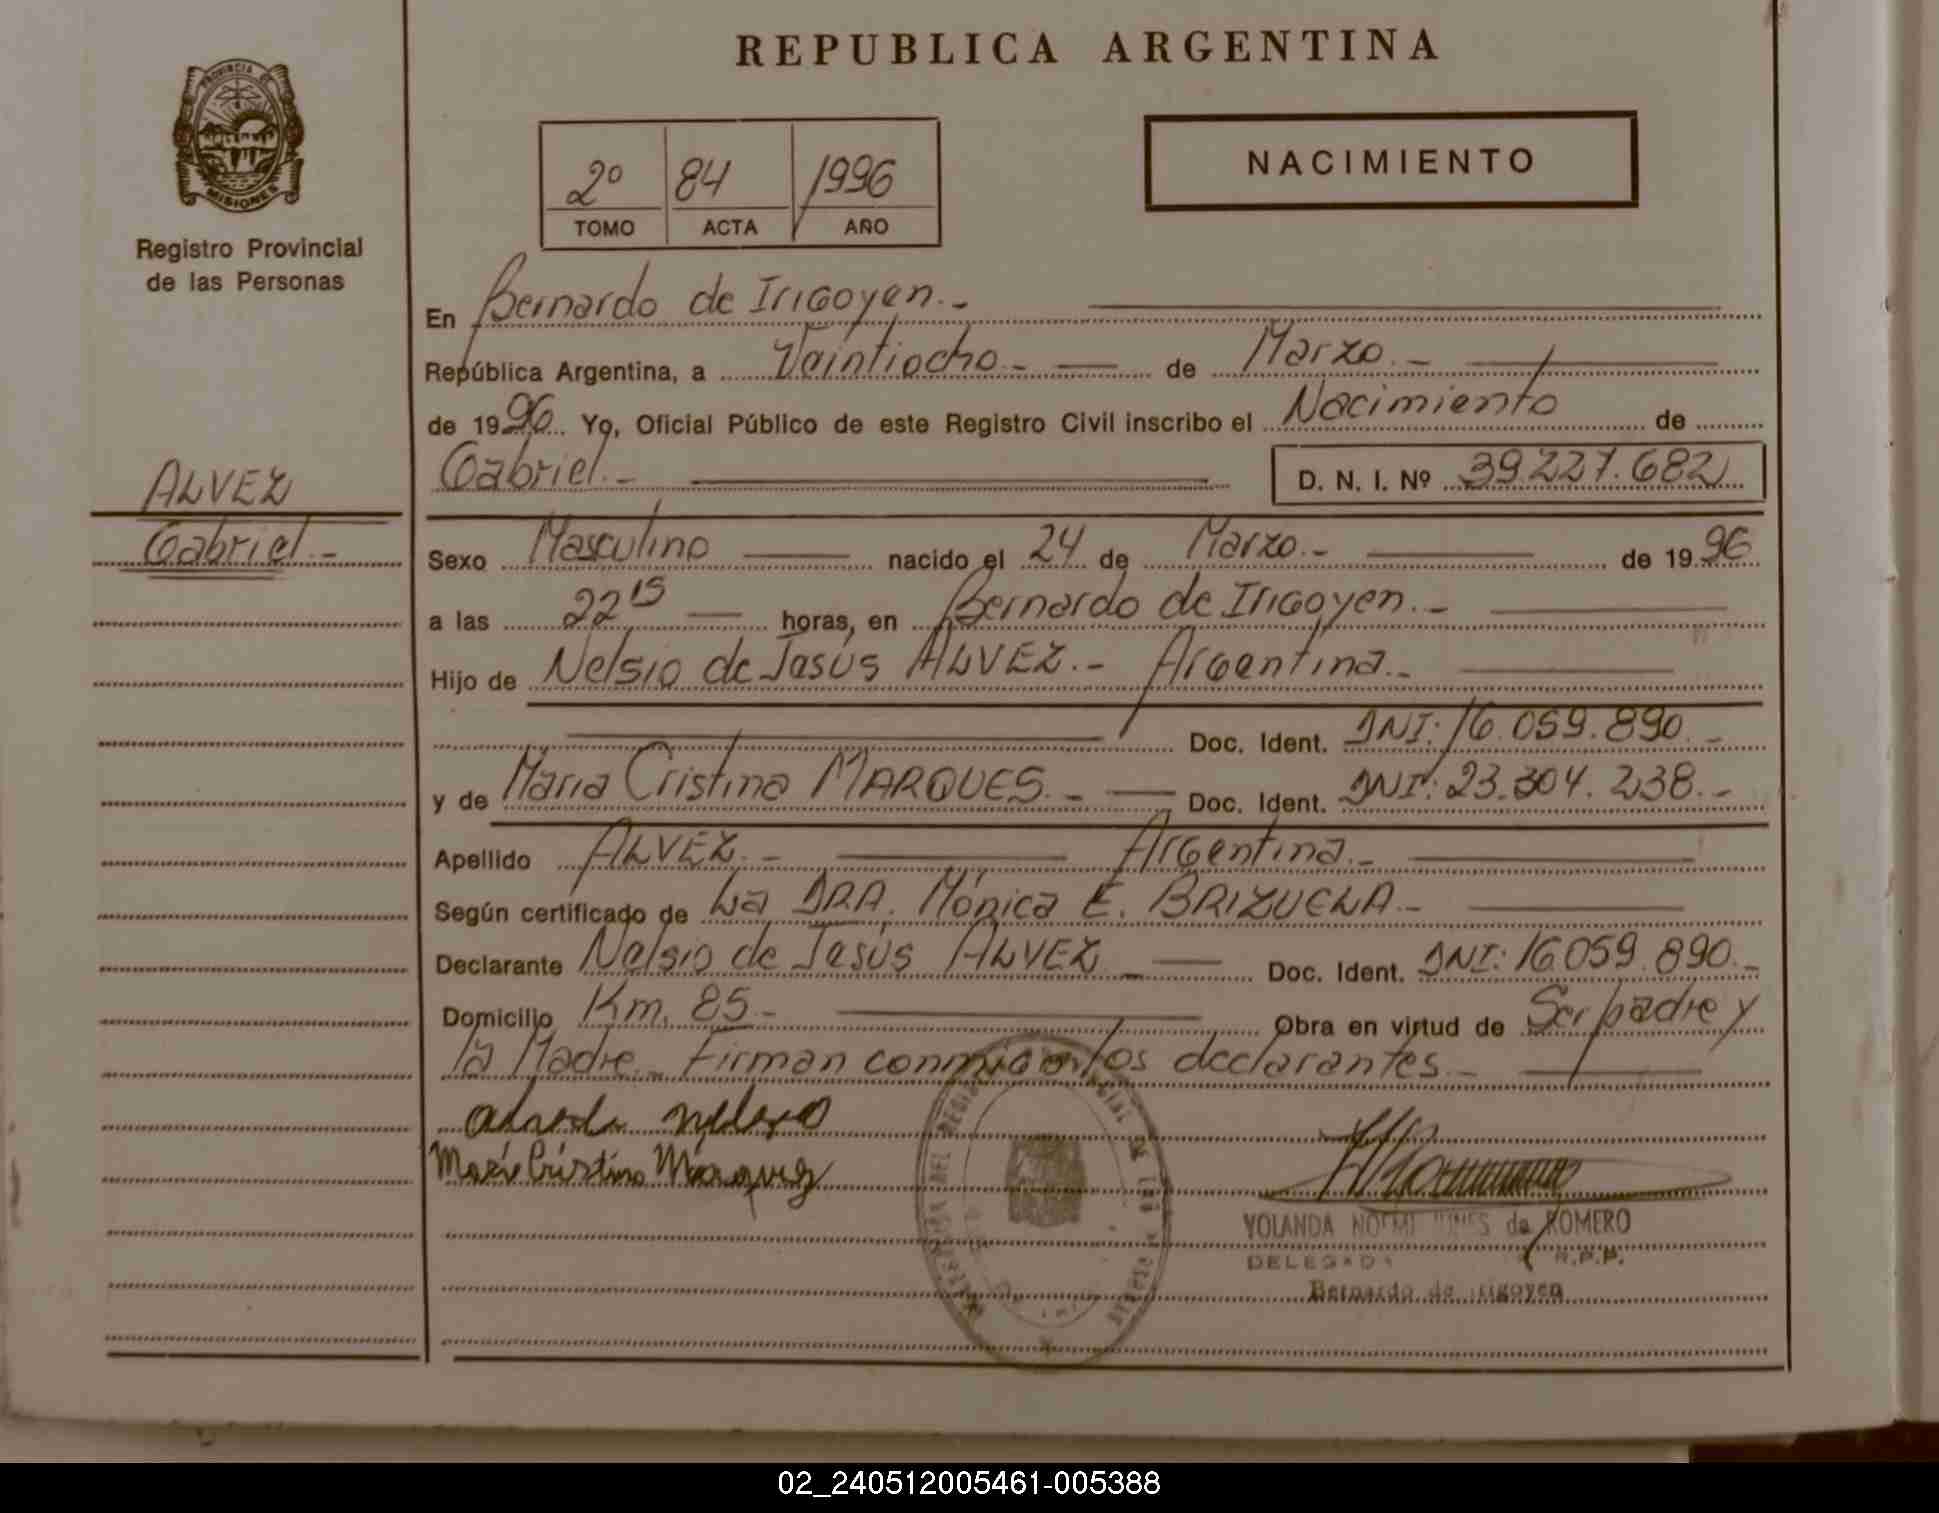 REPUBLICA ARGENTINA
PROVINCIA DE
MISIONES
Registro Provincial
de las Personas
2º 84 1996
TOMO ACTA AÑO
NACIMIENTO
En Bernardo de Irigoyen.-
República Argentina, a Veintiocho.- de Marzo.-
de 1996. Yo, Oficial Público de este Registro Civil inscribo el Nacimiento de
Gabriel.- D. N. I. Nº 39.227.682
ALVEZ
Gabriel.-
Sexo Masculino nacido el 24 de Marzo.- de 1996
a las 22 15 horas, en Bernardo de Irigoyen.-
Hijo de Nelsio de Jesús ALVEZ.- Argentina.-
Doc. Ident. DNI: 16.059.890.-
y de Maria Cristina MARQUES.- Doc. Ident. DNI: 23.304.238.-
Apellido ALVEZ.- Argentina.-
Según certificado de La DRA. Mónica E. BRIZUELA.-
Declarante Nelsio de Jesús ALVEZ.- Doc. Ident. DNI: 16.059.890.-
Domicilio Km. 85.- Obra en virtud de Ser padre y
la Madre.- Firman conmigo los declarantes.-
Maria Cristina Marquez
YOLANDA NOEMI de ROMERO
DELEGADA R.P.P.
Bernardo de Irigoyen
02_240512005461-005388